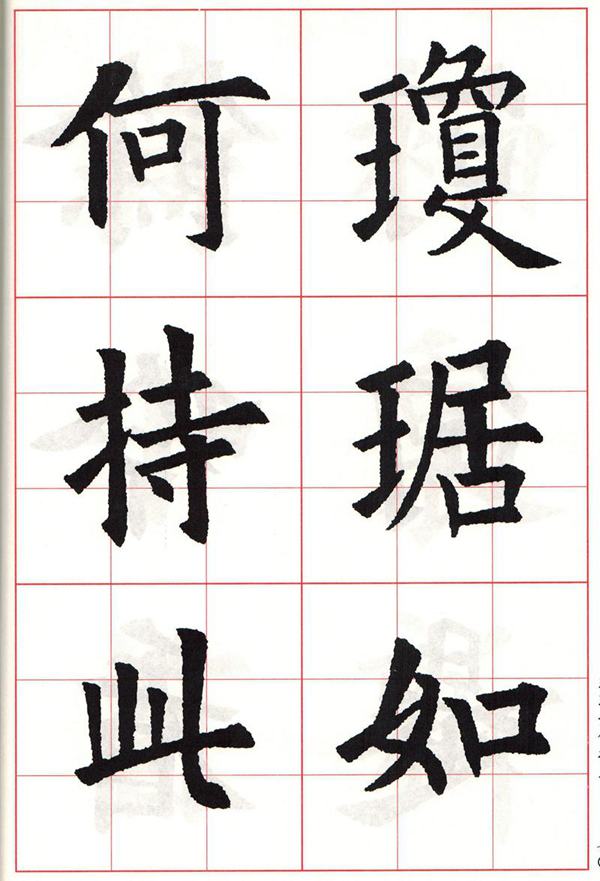 瓊琚如
何持此